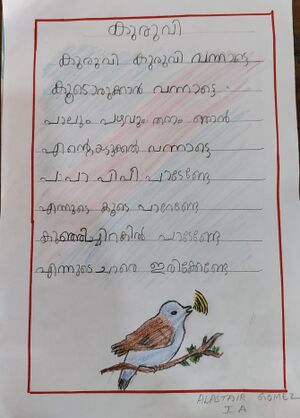 കുരുവി
കുരുവി കുരുവി വന്നാട്ടെ
കൂടൊരുക്കാൻ വന്നാട്ടെ
പാലും പഴവും തന്നം ഞാൻ
എൻ്റെകടുക്കൽ വന്നാട്ടെ
പാപാ പിപീ പാടേണ്ടേ
എന്നുടെ കൂടെ പാറേണ്ടേ
കുഞ്ഞിച്ചിറകിൽ പാടേണ്ടേ
എന്നുടെചാരെ ഇരിക്കേണ്ടേ
ALASTAIR GOMEZ
I A